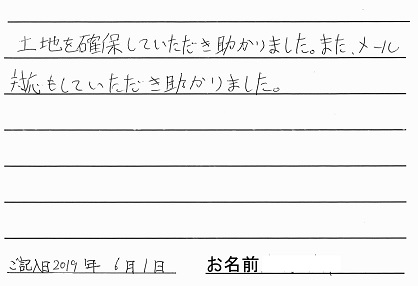 土地を確保していただき助かりました。また、メール
対応もしていただき助かりました。
ご記入日2019年 6月1日 お名前